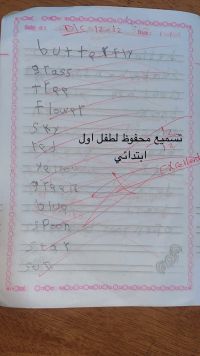 Dic: 12-12
butterfly
grass
tree
flower
sky
red
تسميع محفوظ لطفل اول
ابتدائي
yellow
Excellent
green
blue
spoon
star
sun